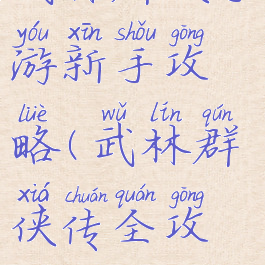 yóu xīn shǒu gōng
游新手攻
lüè wǔ lín qún
略(武林群
xiá chuán quán gōng
侠传全攻